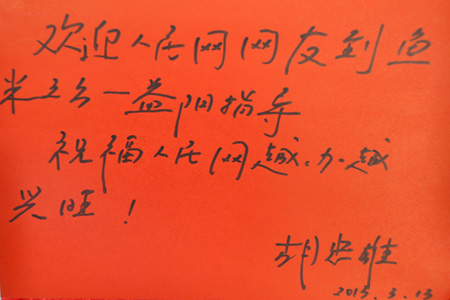 欢迎人民网网友到鱼
米之乡—益阳指导
祝福人民网越办越
兴旺!
胡忠雄
2013.3.13